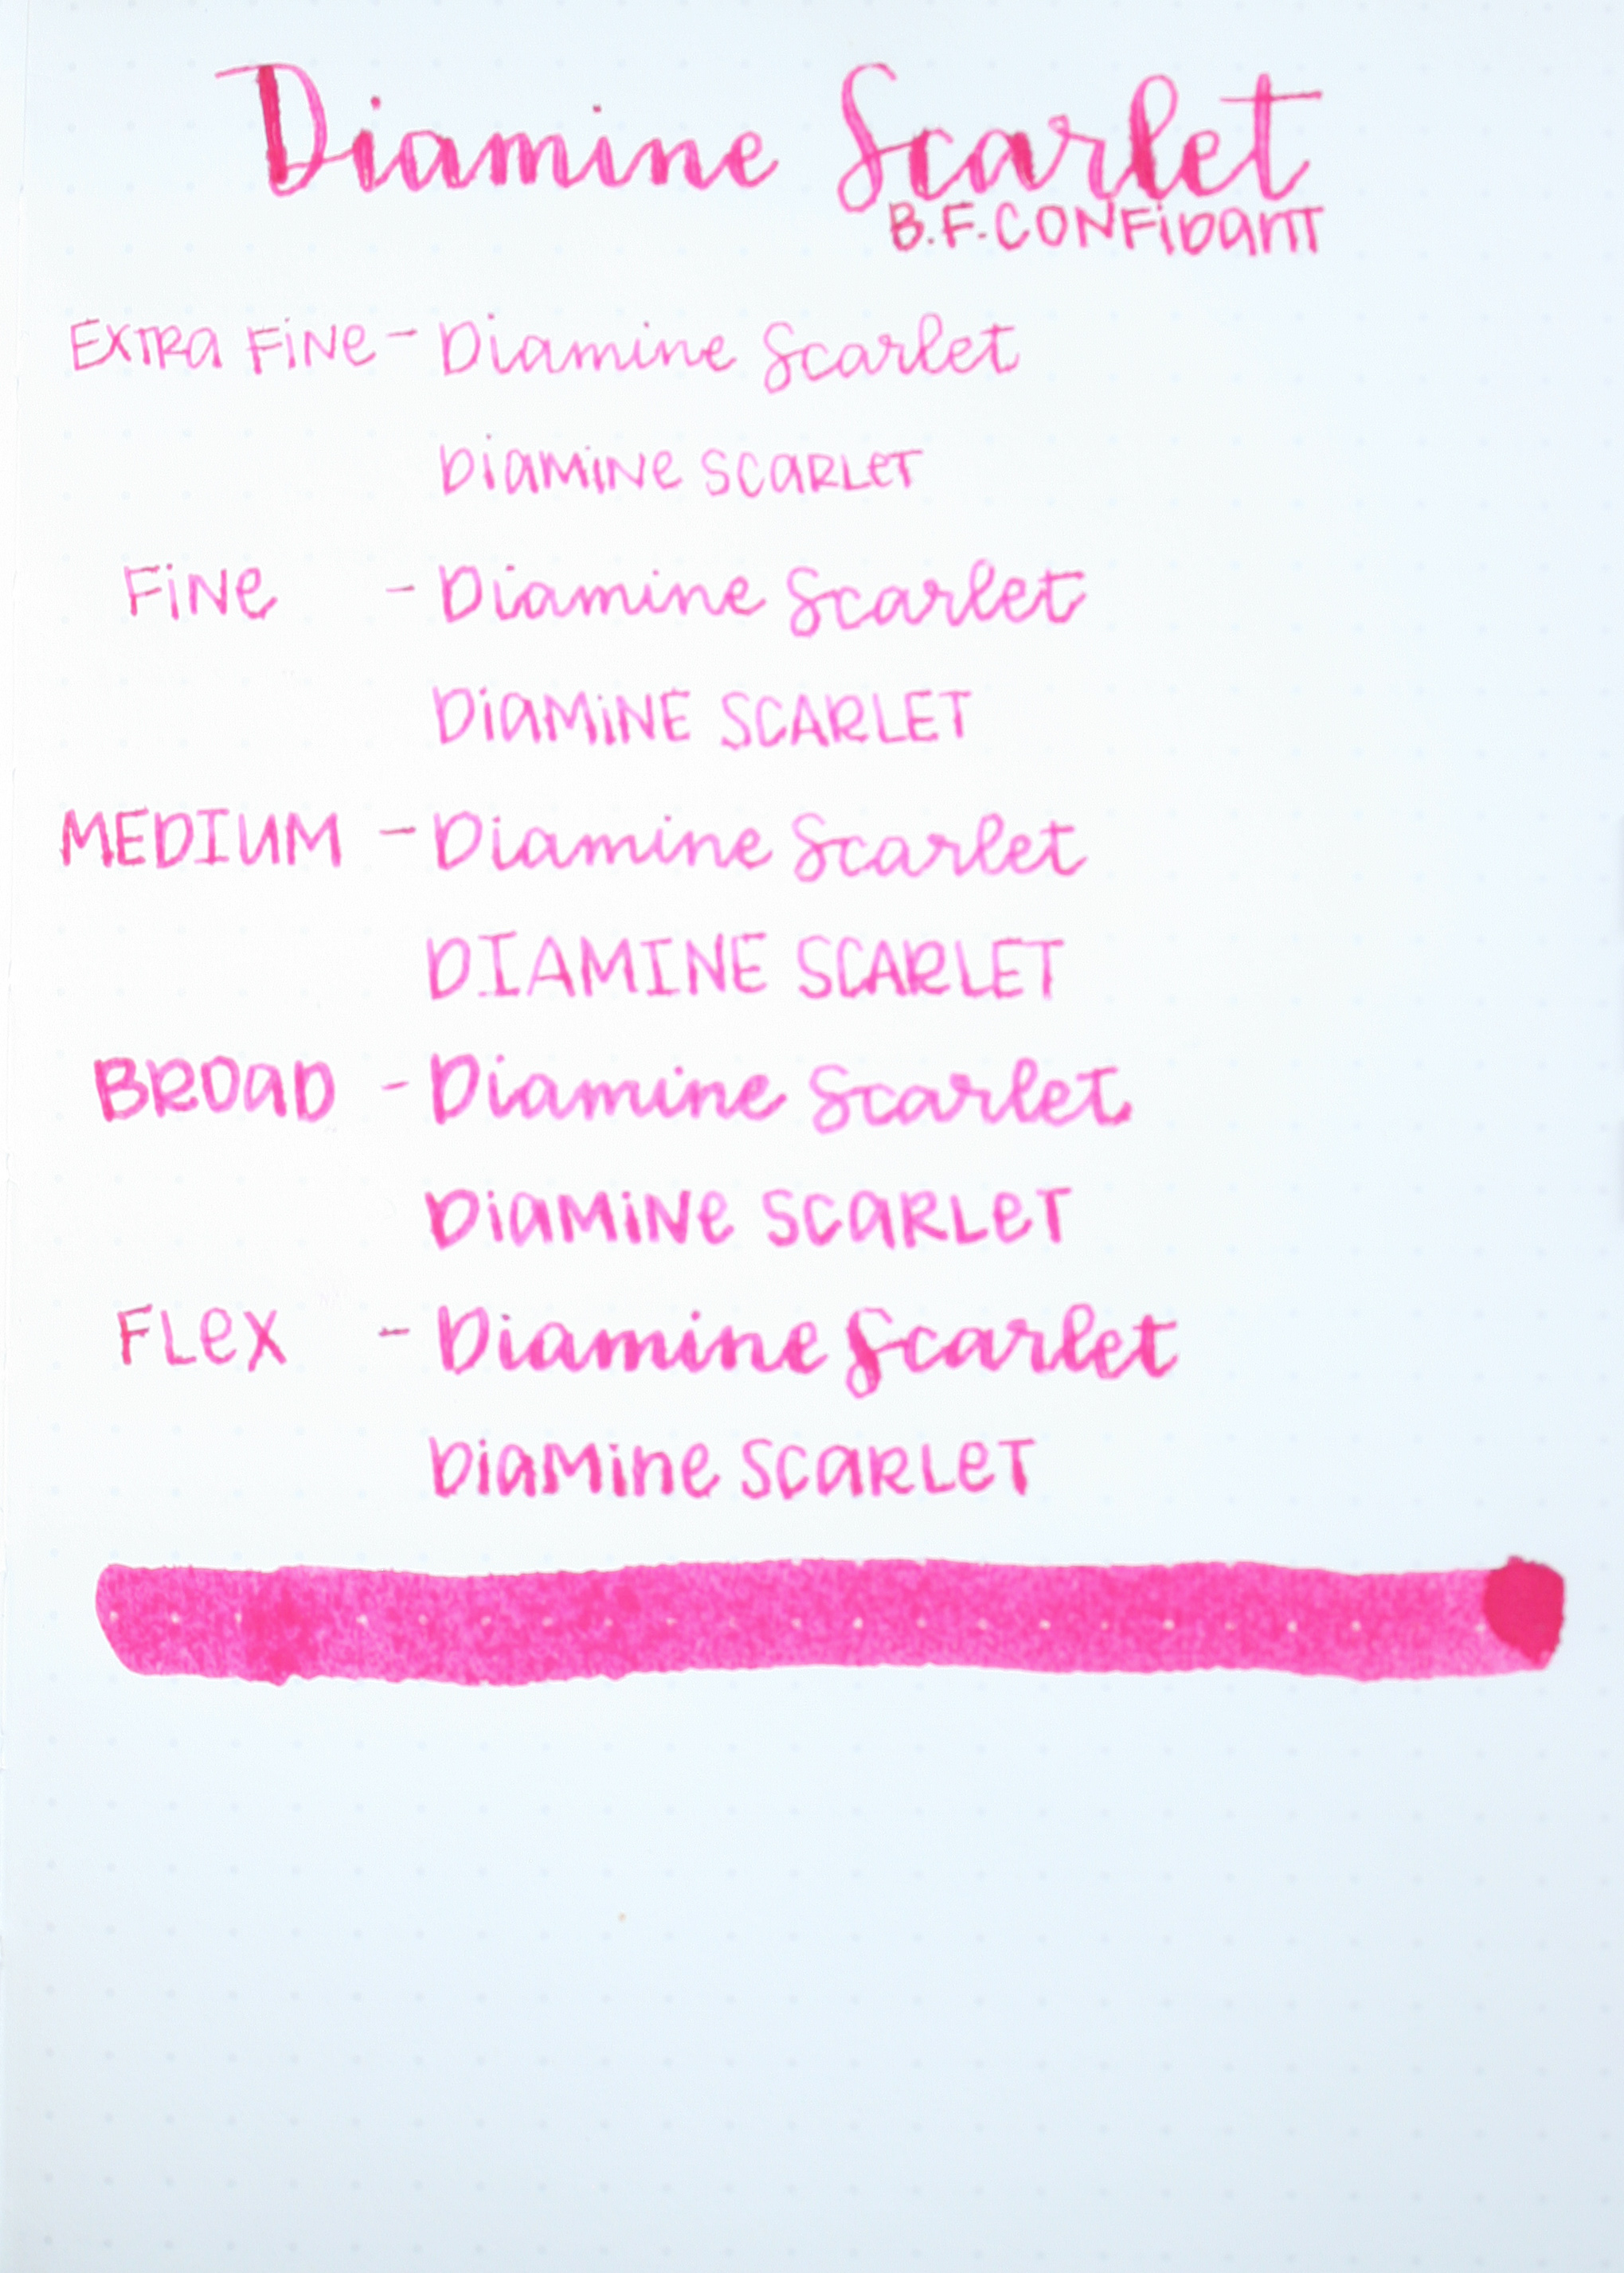 Diamine Scarlet
B.F. CONFiDANT
EXTRA FiNe - Diamine Scarlet
DiAMiNe SCARLeT
FiNe - Diamine Scarlet
DiAMiNE SCARLET
MEDIUM - Diamine Scarlet
DIAMINE SCARLET
BROAD - Diamine Scarlet
DiAMiNe SCARLeT
FLeX - Diamine Scarlet
DiAMine SCARLeT